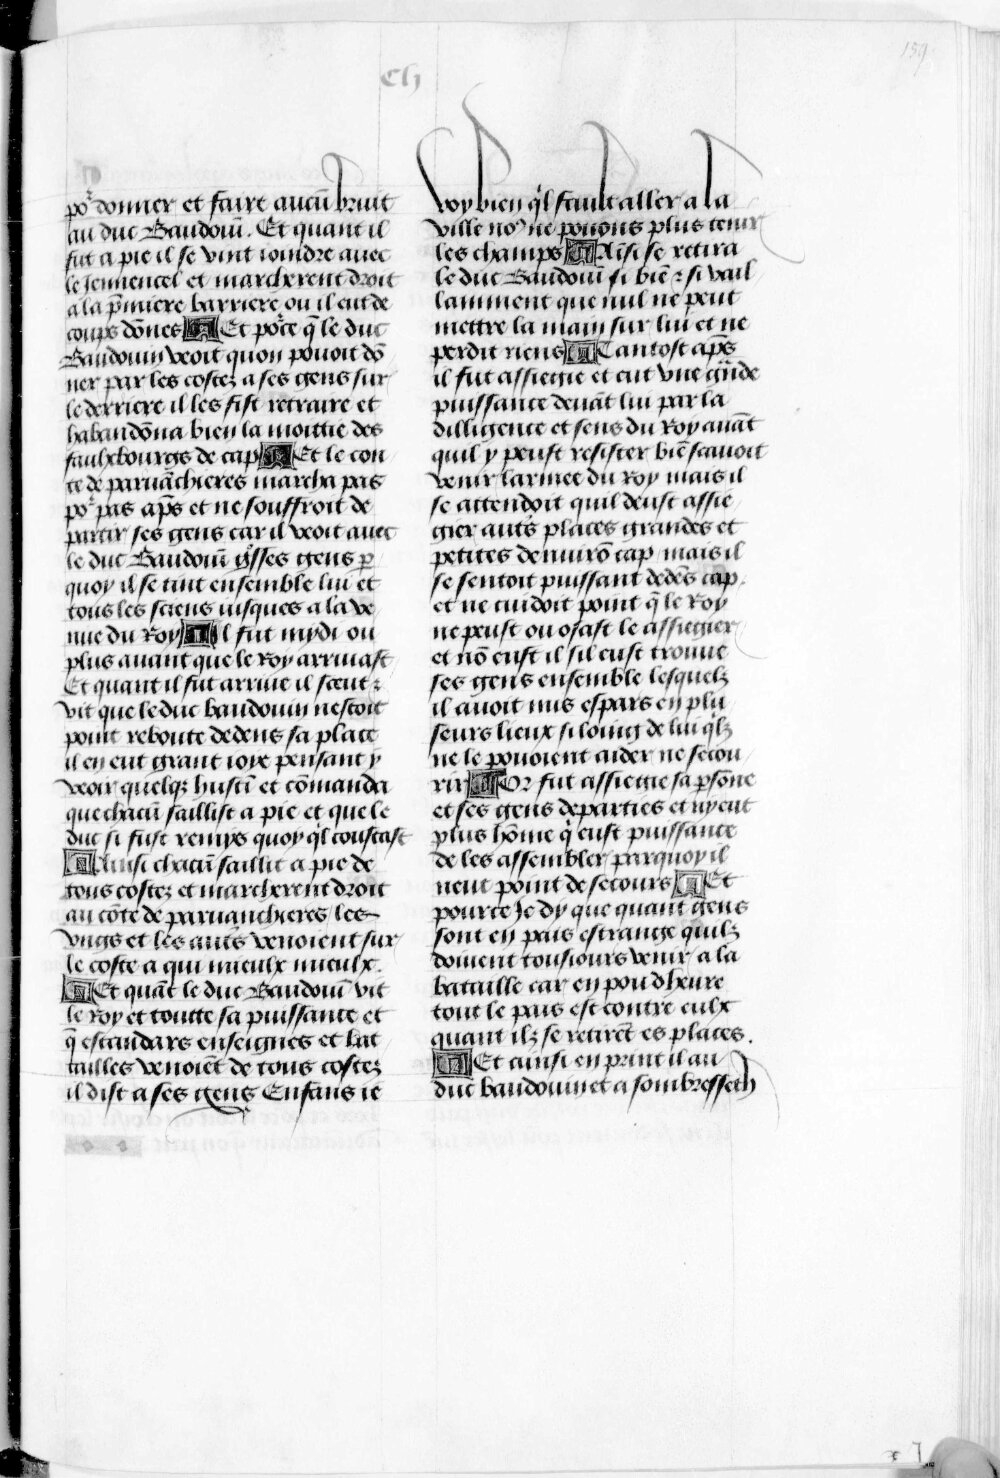 159
Ch
po᷑ donner et faire aucū bruit
au duc Baudouī. Et quant il
fut a pie il se vint ioindre auec
le Jennencel et marcherent droit
a la p̄miere barriere ou il eut de
coups dōnes Et po᷑ce q̄ le duc
Baudouin veoit quon pouoit dō
ner par les costez a ses gens sur
le derriere il les fist retraire et
habandōna bien la moittie des
faulxbourgs de cap Et le con
te de paruāchieres marcha pas
po᷑ pas ap̄s et ne souffroit de
partir ses gens car il veoit auec
le duc Baudouī gͦsses gens ꝑ
quoy il se tint ensemble lui et
tous les siens iusques a la ve
nue du Roy Il fut mydi ou
plus auant que le Roy arriuast
Et quant il fut arriue il sceut ⁊
vit que le duc baudouin nestoit
point reboute dedens sa place
il en eut grant ioye pensant y
veoir quelqȝ hustī et cōmanda
que chacū saillist a pie et que le
duc si fust remys quoy qͥl coustast
Ainsi chacū saillit a pie de
tous costez et marcherent droit
au cōte de paruanchieres les
vngs et les aut̄s venoient sur
le coste a qui mieulx mieulx.
Et quāt le duc Baudouī vit
le Roy et toutte sa puissance et
q̄ estandars enseignes et bat
tailles venoiēt de tous costez
il dist a ses gens Enfans ie
voy bien qͥl fault aller a la
ville noꝰ ne pouons plus tenir
les champs Aīsi se retira
le duc Baudouī si biē ⁊ si vail
lamment que nul ne peut
mettre la main sur lui et ne
perdit riens Tantost ap̄s
il fut assiegie et eut vne gͣnde
puissance deuāt lui par la
dilligence et sens du Roy auāt
quil y peust resister biē scauoit
venir larmee du Roy mais il
se attendoit quil deust assie
gier aut̄s places grandes et
petites denuirō cap mais il
se sentoit puissant dedēs cap.
et ne cuidoit point q̄ le Roy
ne peust ou osast le assiegier
et nō eust il sil eust trouue
ses gens ensemble lesquelz
il auoit mis espars en plu
seurs lieux si loing de lui qͥlz
ne le pouoient aider ne secou
rir Or fut assiegie sa ꝑsōne
et ses gens departies et ny eut
plus hōme qͥ eust puissance
de les assembler parquoy il
neut point de secours Et
pource Je dy que quant gens
sont en pais estrange quilz
doiuent tousiours venir a la
bataille car en pou dheure
tout le pais est contre eulx
quant ilz se retirēt es places.
Et ainsi en print il au
duc baudouin et a sombresseth